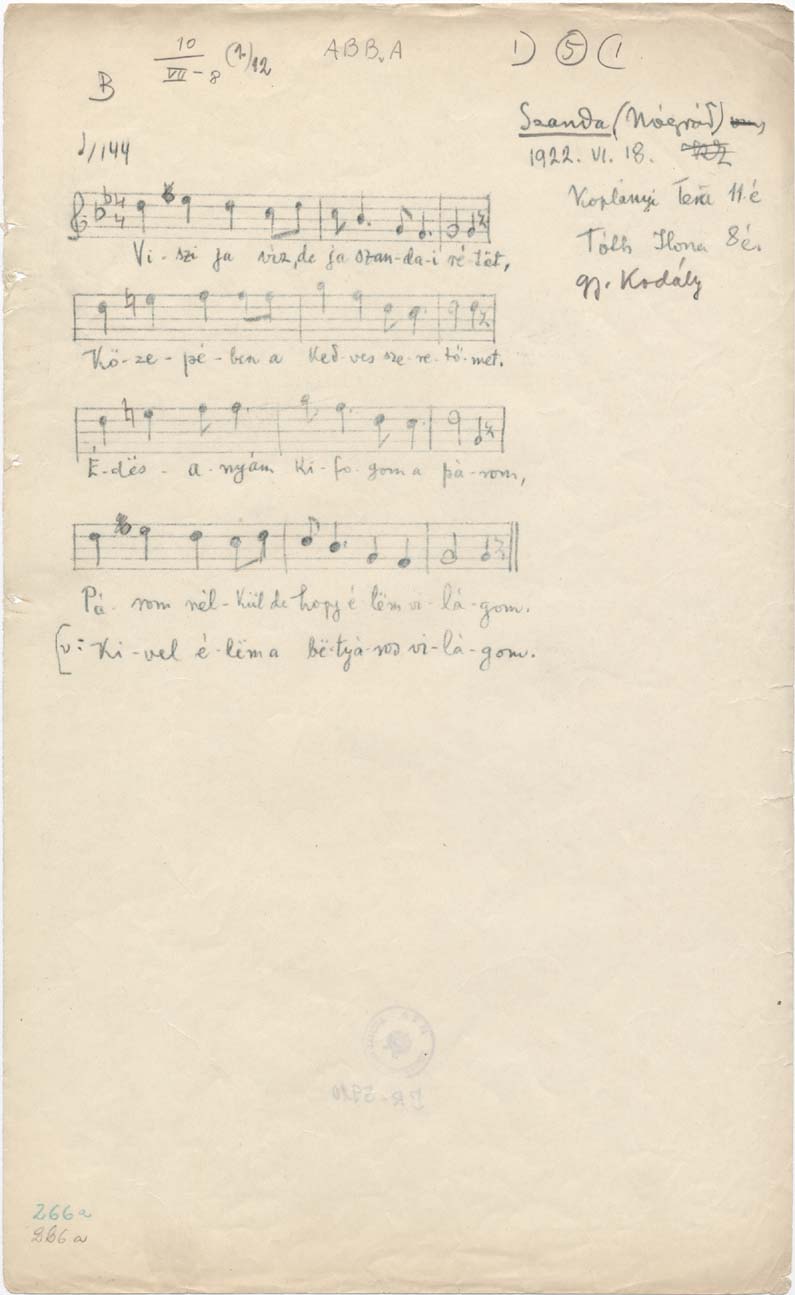 10
VII-8 (1)12
ABBvA
1) 5 (1
B
Szanda (Nógrád)
1922. VI. 18.
♩/144
Koplányi Tera 11 é
Tóth Ilona 8 é.
gy. Kodály
Vi-szi ja viz, de ja szan-da-i ré-tët,
Kö-ze-pé-ben a ked-ves sze-re-tő-met.
É-dës-a-nyám ki-fo-gom a pá-rom,
Pá-rom nél-kül de hogy é-lëm vi-lá-gom.
v: Ki-vel é-lëm a bë-tyá-ros vi-lá-gom.
266a
266a